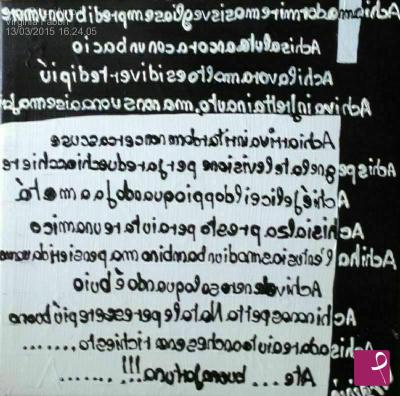 Virginia Fabbri
13/03/2015 16.24.05
A chi ama dormire ma si sveglia sempre di buon umore
A chi saluta ancora con un bacio
A chi lavora molto e si diverte di più
A chi va in fretta in auto, ma non suona ai semafori
A chi arriva in ritardo ma non cerca scuse
A chi spegne la televisione per fare due chiacchiere
A chi è felice il doppio quando fa a metà
A chi si alza presto per aiutare un amico
A chi ha l'entusiasmo di un bambino ma pensieri da uomo
A chi vede nero solo quando è buio
A chi non aspetta Natale per essere più buono
A chi sa dare aiuto anche se non richiesto........
A te .... buona fortuna!!! ........